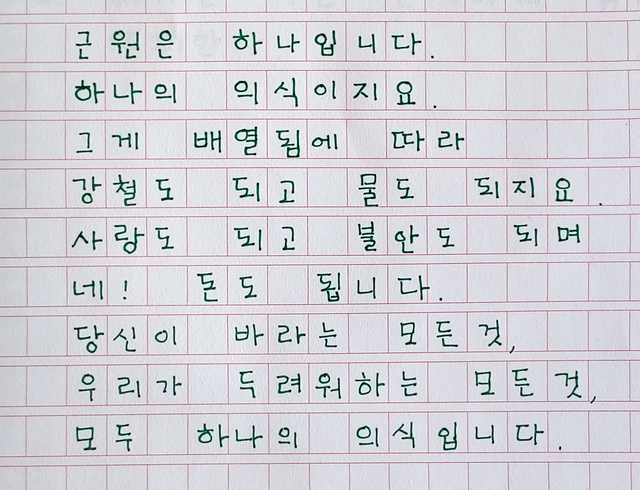 근원은 하나입니다.
하나의 의식이지요.
그게 배열됨에 따라
강철도 되고 물도 되지요.
사랑도 되고 불안도 되며
네! 돈도 됩니다.
당신이 바라는 모든것,
우리가 두려워하는 모든것,
모두 하나의 의식입니다.